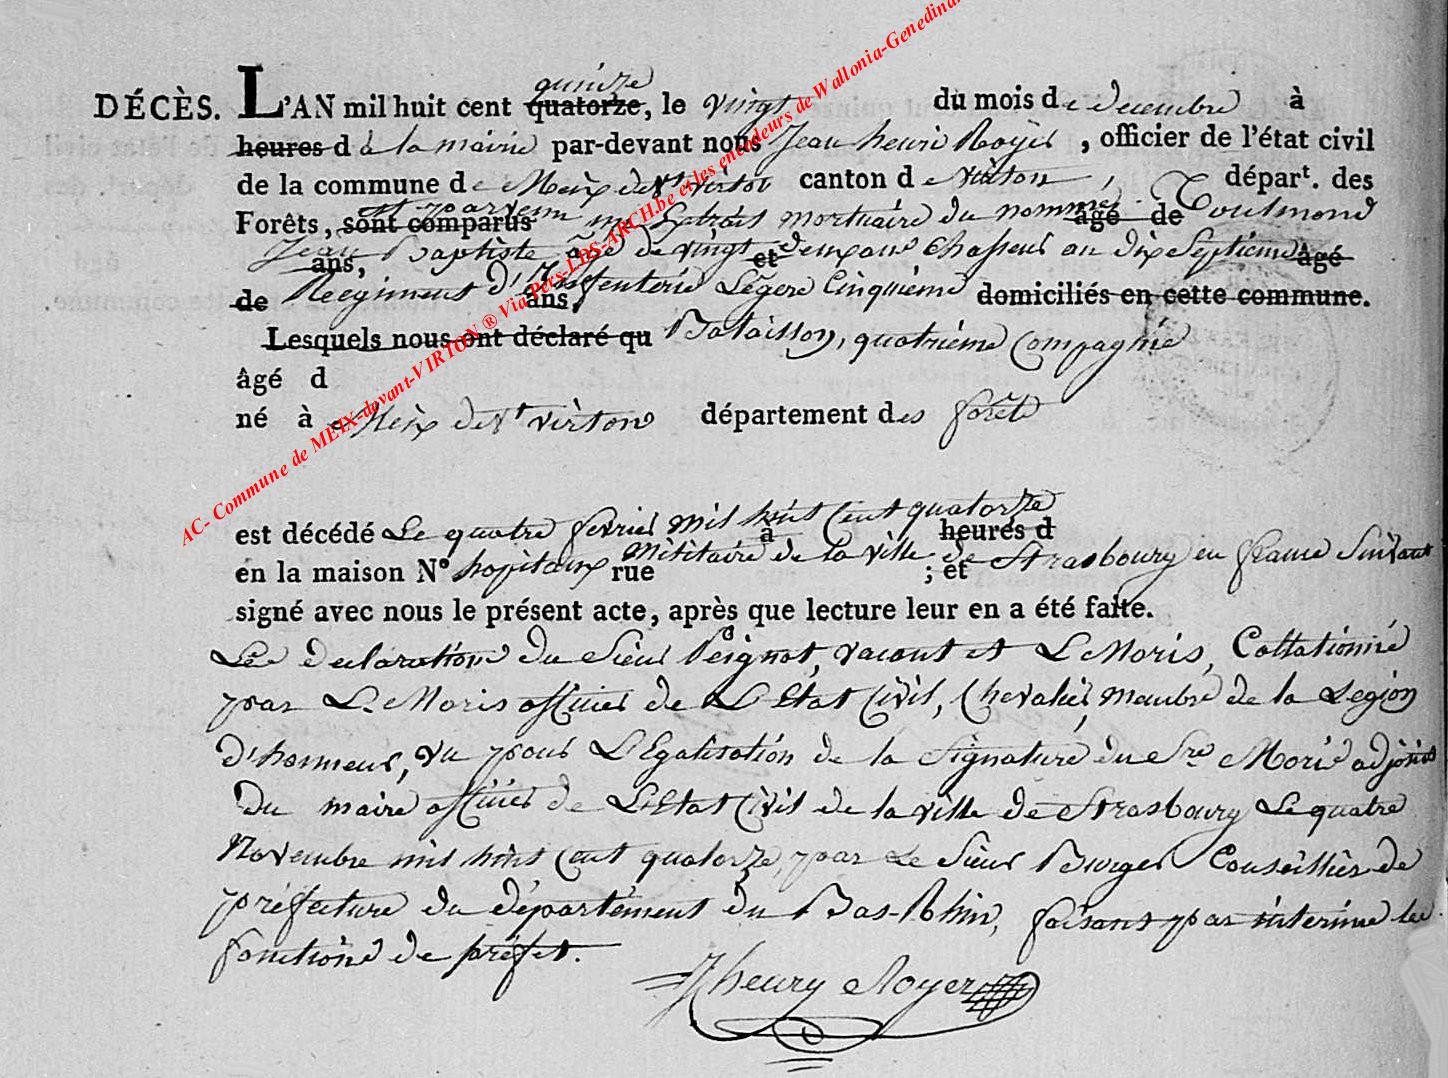 DÉCÈS. L'AN mil huit cent quinze quatorze, le vingt du mois de decembre à
heures d à la mairie par-devant nous Jean henri Royer, officier de l'état civil
de la commune de Meix devt virton canton de virton, départ. des
Forêts, sont comparus est parvenu un Extrait mortuaire du nommé âgé de Toulmond
Jean Baptiste âgé de vingt et deux ans, Chasseur au dix Septieme âgé
de Regiment d'Infenterie ans, Légere Cinquième domiciliés en cette commune.
Lesquels nous ont déclaré qu Bataillon, quatrième Compagnie
âgé d
né à Meix devt virton département des forêt
est décédé Le quatre fevrier mil huit Cent quatorze à heures d
en la maison N° hopitaux rue militaire de la ville ; et de Strasbourg en france Suivant
signé avec nous le présent acte, après que lecture leur en a été faite.
Les declaration du Sieur Peignot, vacant et LeMoris, Collationné
par Le Moris officier de L'Etat Civil, Chevalier, membre de la Legion
d'honneur, vu pour LEgalisation de la Signature du Sre Moris adjoint
Du maire officier de L'Etat Civil de la ville de Strasbourg Le quatre
Novembre mil huit Cent quatorze, par Le Sieur Burger Conseillier de
préfecture du département du Bas-Rhin, faisant par interime les
fonctions de préfet.
JhenryRoyer
AC- Commune de MEIX-devant-VIRTON ® Via Pers-LDS-ARCH.be et les encodeurs de Wallonia-Genedinar